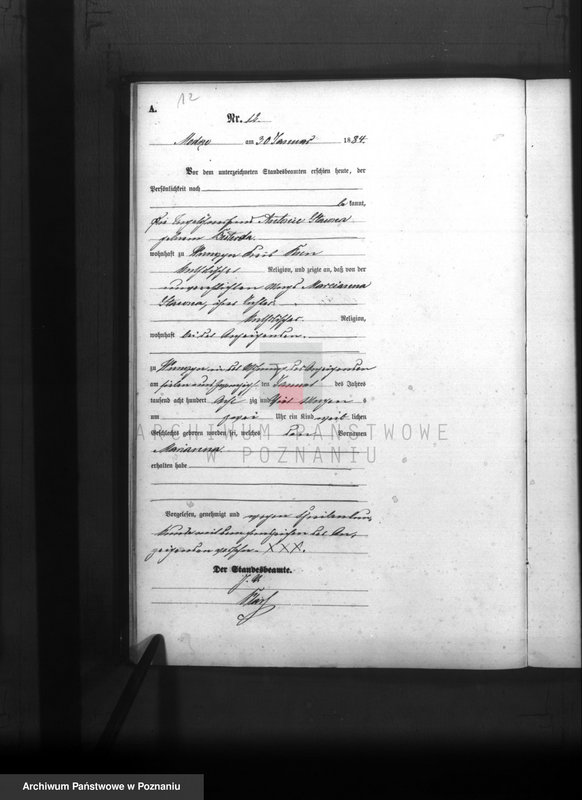 12
A.
Nr. 12.
am 30 Januar 1884.
Vor dem unterzeichneten Standesbeamten erschien heute, der
Persönlichkeit nach
be kannt,
die
geborene
wohnhaft zu Kreis
katholischer Religion, und zeigte an, daß von der
unverehelichten Magd Marcianna
ihrer Tochter
katholischer Religion,
wohnhaft bei der Anzeigenden
zu in der Wohnung der Anzeigenden
am sieben und zwanzigsten Januar des Jahres
tausend acht hundert acht zig und vier Morgens
um zwei Uhr ein Kind weib lichen
Geschlechts geboren worden sei, welches den Vornamen
Marianna
erhalten habe
Vorgelesen, genehmigt und wegen Schreibensun
kunde mit dem Handzeichen der An
zeigenden versehen. XXX.
Der Standesbeamte.
ARCHIWUM PAŃSTWOWE
W POZNANIU
Archiwum Państwowe w Poznaniu